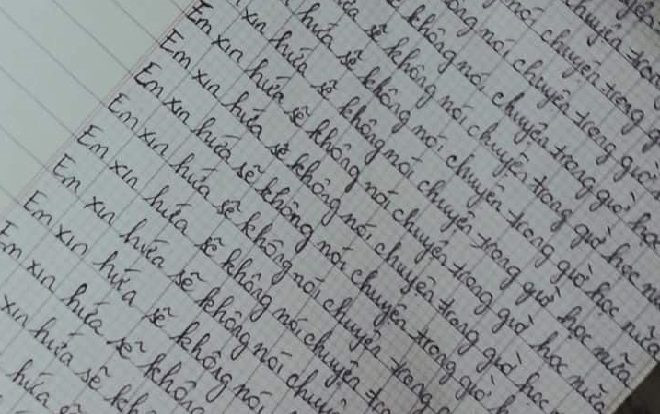 chuyện trong
ông nói chuyện trong
không nói chuyện trong giờ
hứa sẽ không nói chuyện trong giờ học
xin hứa sẽ không nói chuyện trong giờ học
Em xin hứa sẽ không nói chuyện trong giờ học nữa
Em xin hứa sẽ không nói chuyện trong giờ học nữa
Em xin hứa sẽ không nói chuyện trong giờ học
Em xin hứa sẽ không nói chuyện trong giờ
Em xin hứa sẽ không nói chuyện trong
Em xin hứa sẽ không nói chuyện
Em xin hứa sẽ không nói
Em xin hứa sẽ không
xin hứa sẽ
hứa